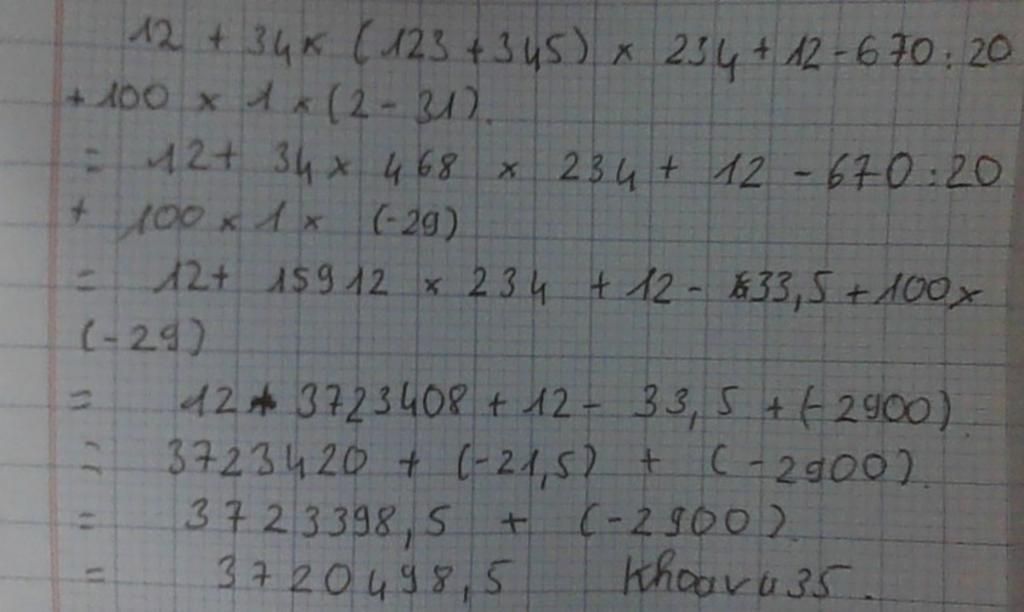 12 + 34 × (123 + 345) × 234 + 12 - 670 : 20
+ 100 × 1 × (2 - 31).
= 12 + 34 × 468 × 234 + 12 - 670 : 20
+ 100 × 1 × (-29)
= 12 + 15912 × 234 + 12 - 33,5 + 100 ×
(-29)
= 12 + 3723408 + 12 - 33,5 + (-2900).
= 3723420 + (-21,5) + (-2900).
= 3723398,5 + (-2900).
= 3720498,5 Khoavu35.